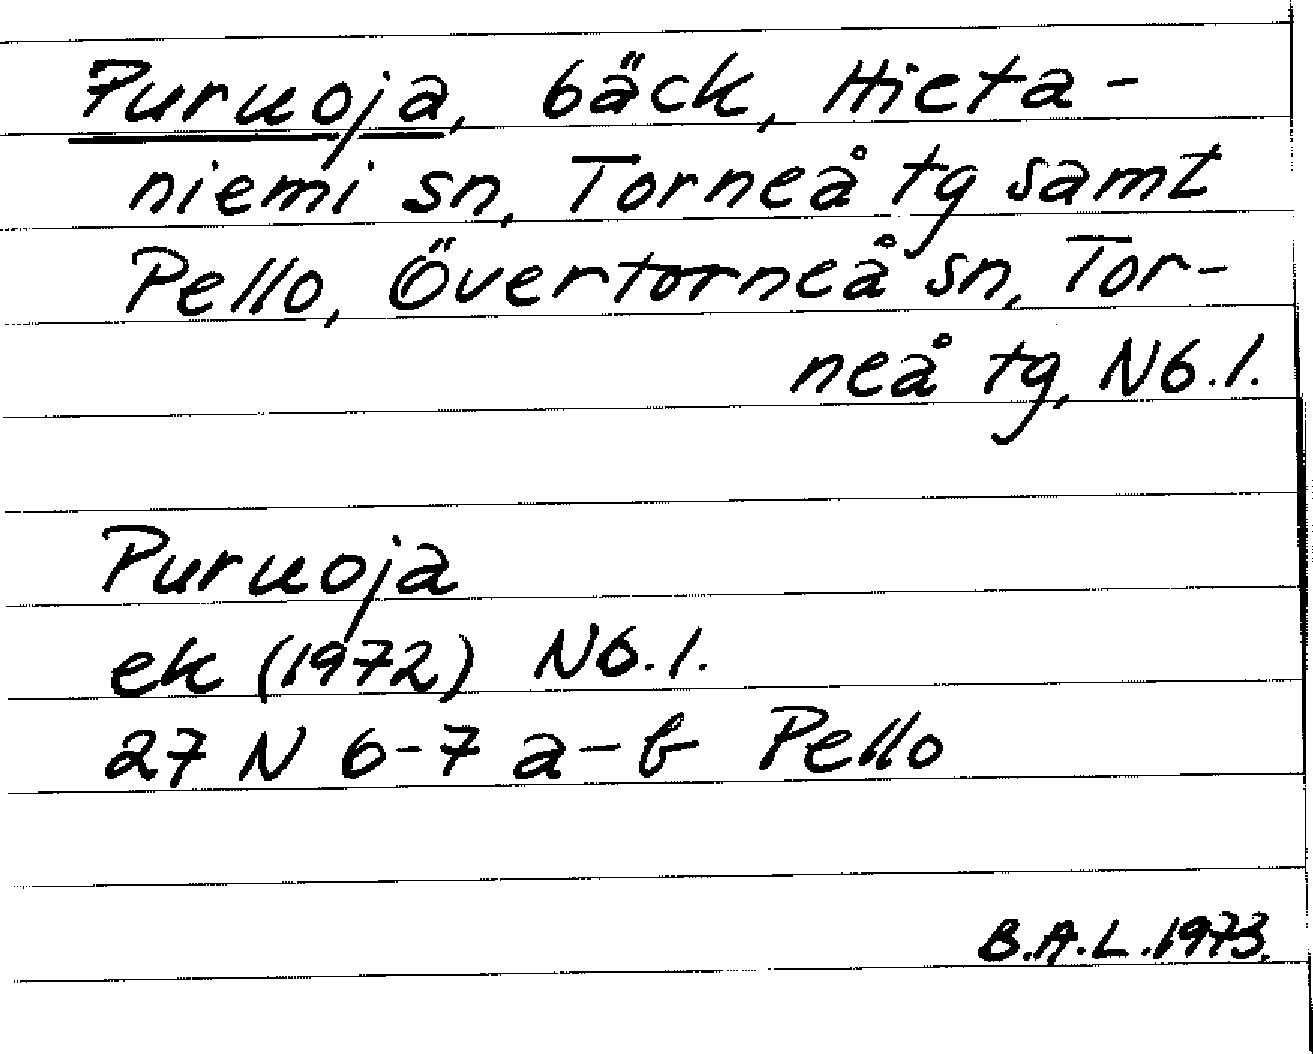 Puruoja, bäck, Hieta-
niemi sn, Torneå tg samt
Pello, Övertorneå sn, Tor-
neå tg, Nb.l.
Puruoja
ek (1972) Nb.l.
27 N 6-7 a-b Pello
B.A.L. 1973.